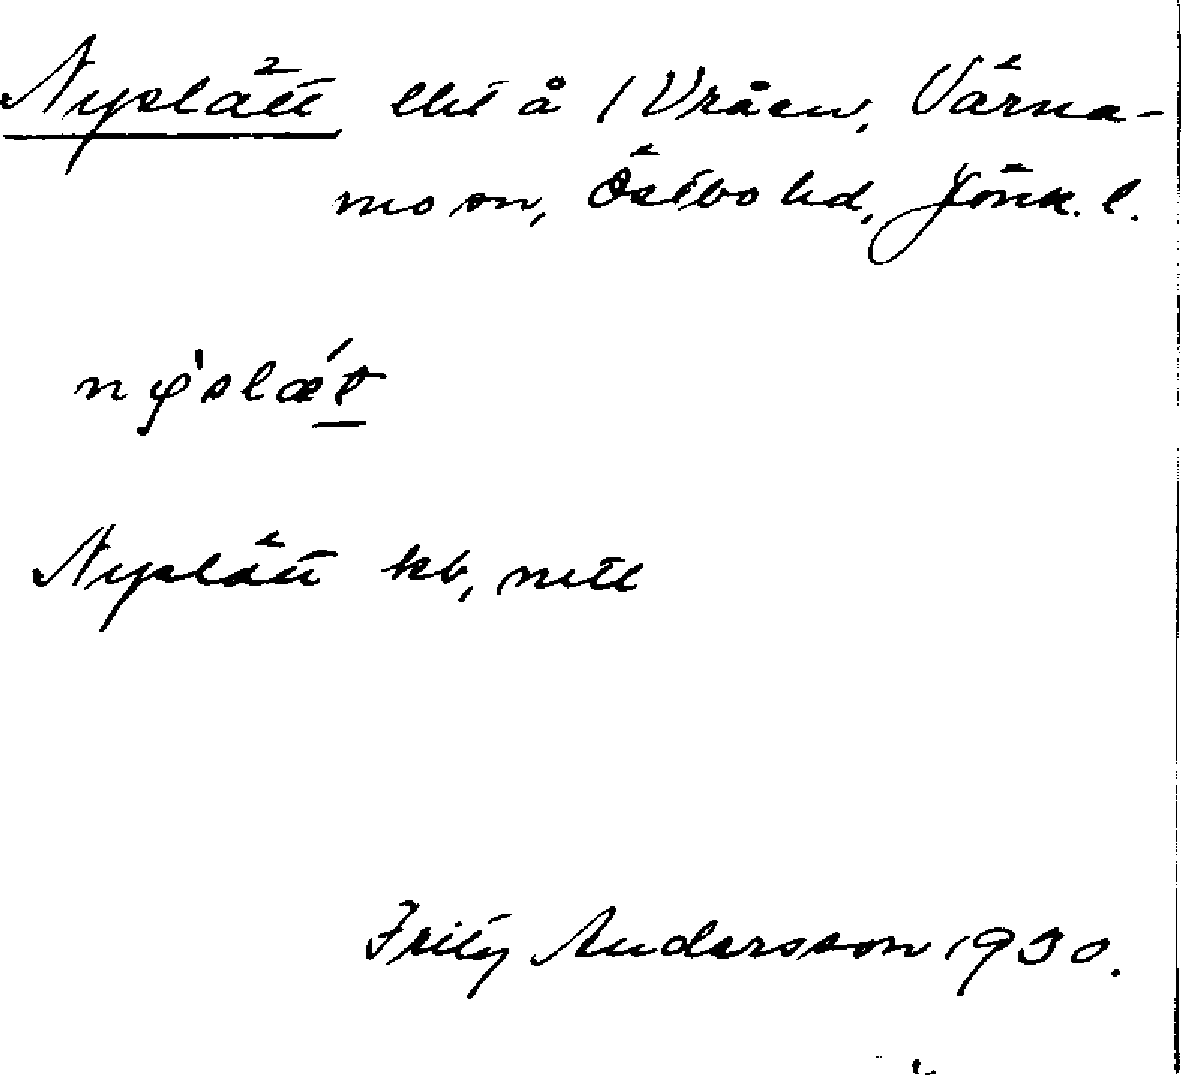 Nyslätt lht å 1 Vråen, Värna-
mo sn, Östbo hd, Jönk. l.
nyslæt
Nyslätt kb,
Fritz Andersson 1930.